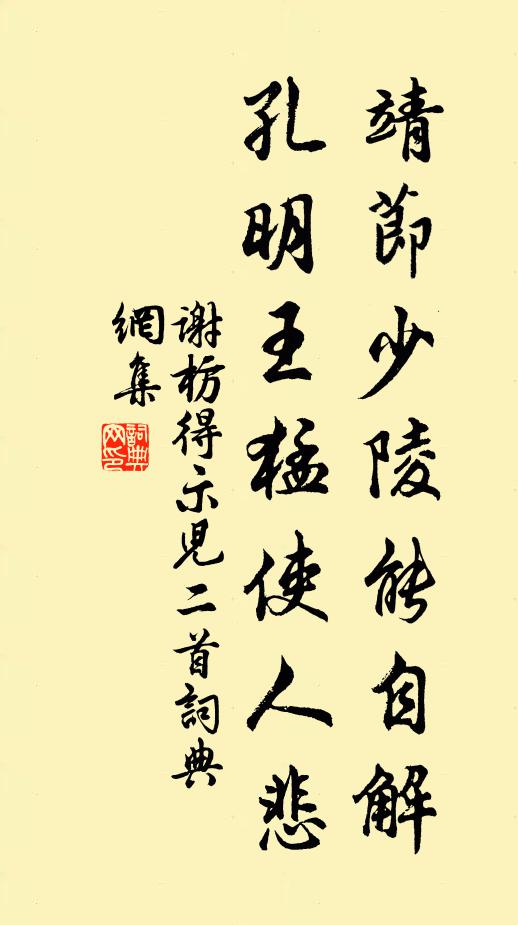 靖節少陵能自解
孔明王猛使人悲
謝枋得示兒二首詞典
網集
詞典
网印